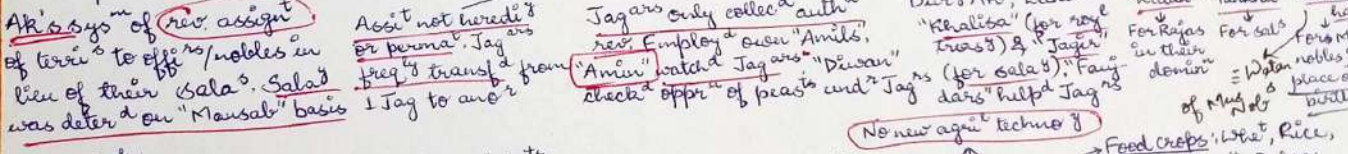 Ak's sysᵐ of rev. assignᵗ
of terriˢ to offiʳˢ/nobles in
lieu of their salaˢ. Salaʸ
was deterᵈ on "Mansab" basis
Assiᵗ not herediʸ
or permaᵗ. Jagᵃʳˢ
freqʸ transfᵈ from
1 Jag to anoʳ
Jagᵃʳˢ only collecᵈ authᵈ
rev. Employᵈ own "Amils",
"Amin" watchᵈ Jagᵃʳˢ "Diwan"
checkᵈ opprⁿ of peasᵗˢ undʳ Jagʳˢ
"Khalisa" (for royˡ
treasʸ) & "Jagir"
(for salaʸ). "Fauj-
dars" helpᵈ Jagʳˢ
For Rajas
in their
dominⁿ
For salˢ
≡ Watan
of Mug
nobles
place o
birth
No new agriˡ technoʸ
Food crops: Wheᵗ, Rice,